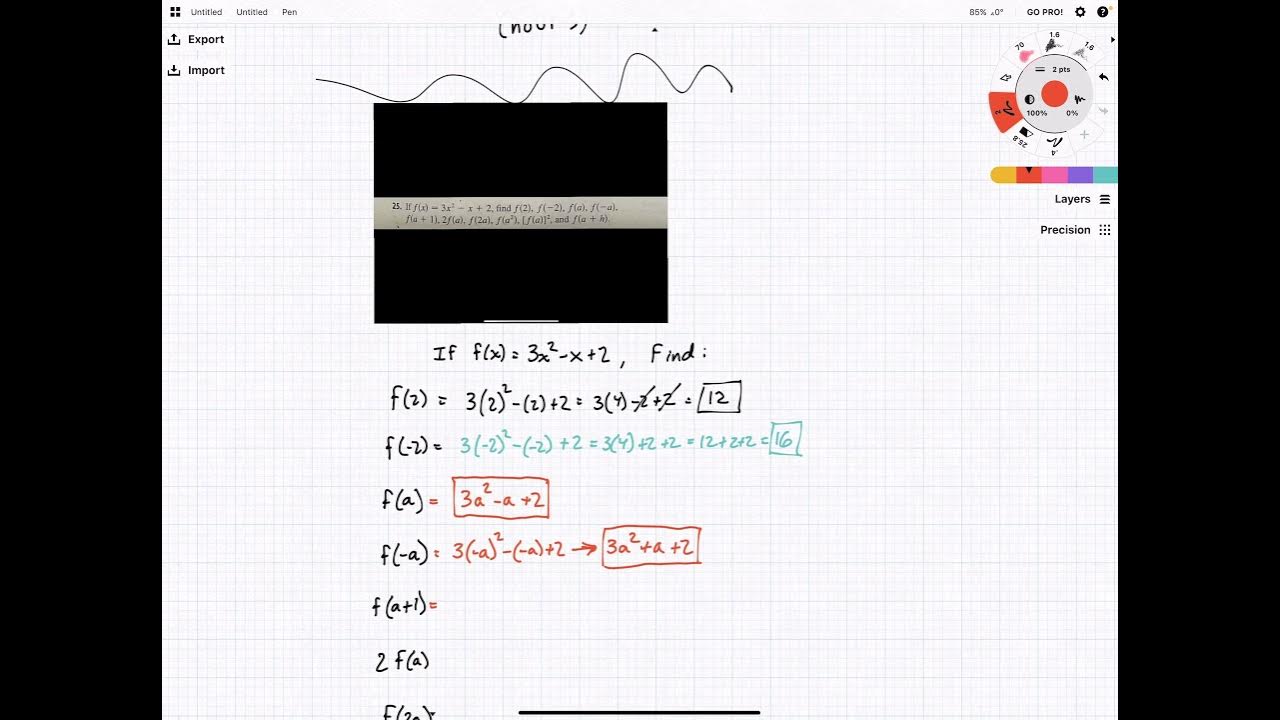 Untitled Untitled Pen 85% ⊿0° GO PRO!
Export
Import
(hour s)
1.6
70 1.6
2 pts
2
100% 0%
25.8 4
Layers
Precision
25. If f(x) = 3x² − x + 2, find f(2), f(−2), f(a), f(−a),
f(a + 1), 2f(a), f(2a), f(a²), [f(a)]², and f(a + h).
If f(x) = 3x² - x + 2 , Find :
f(2) = 3(2)² - (2) + 2 = 3(4) - 2 + 2 = 12
f(-2) = 3(-2)² - (-2) + 2 = 3(4) + 2 + 2 = 12 + 2 + 2 = 16
f(a) = 3a² - a + 2
f(-a) = 3(-a)² - (-a) + 2 → 3a² + a + 2
f(a+1) =
2 f(a)
f(2a)